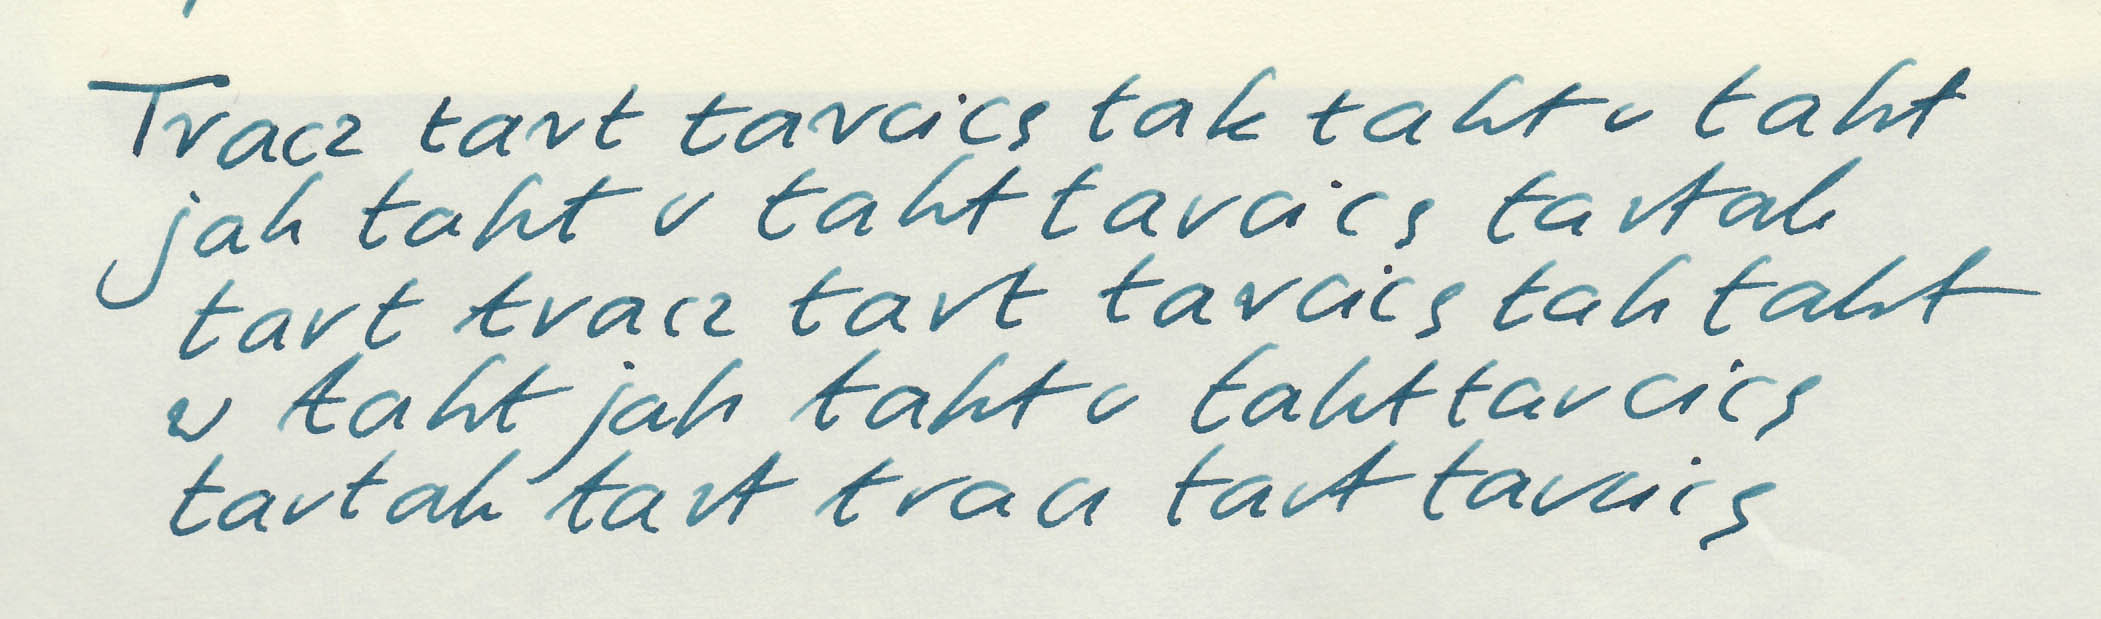 Tracz tarł tarcicę tak takt w takt
jak takt w takt tarcicę tartak
tarł tracz tarł tarcicę tak takt
w takt jak takt w takt tarcicę
tartak tarł tracz tarł tarcicę